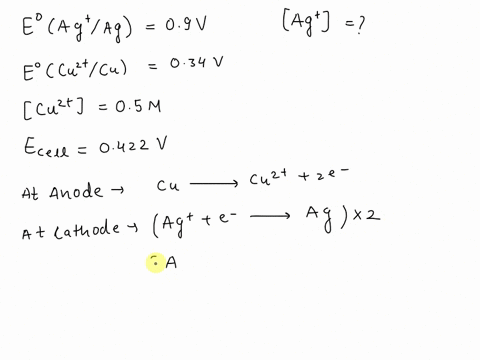 E⁰(Ag⁺/Ag) = 0.9 V [Ag⁺] = ?
E⁰(Cu²⁺/Cu) = 0.34 V
[Cu²⁺] = 0.5 M
Ecell = 0.422 V
At Anode → Cu ⟶ Cu²⁺ + 2e⁻
At Cathode → (Ag⁺ + e⁻ ⟶ Ag) × 2
: A